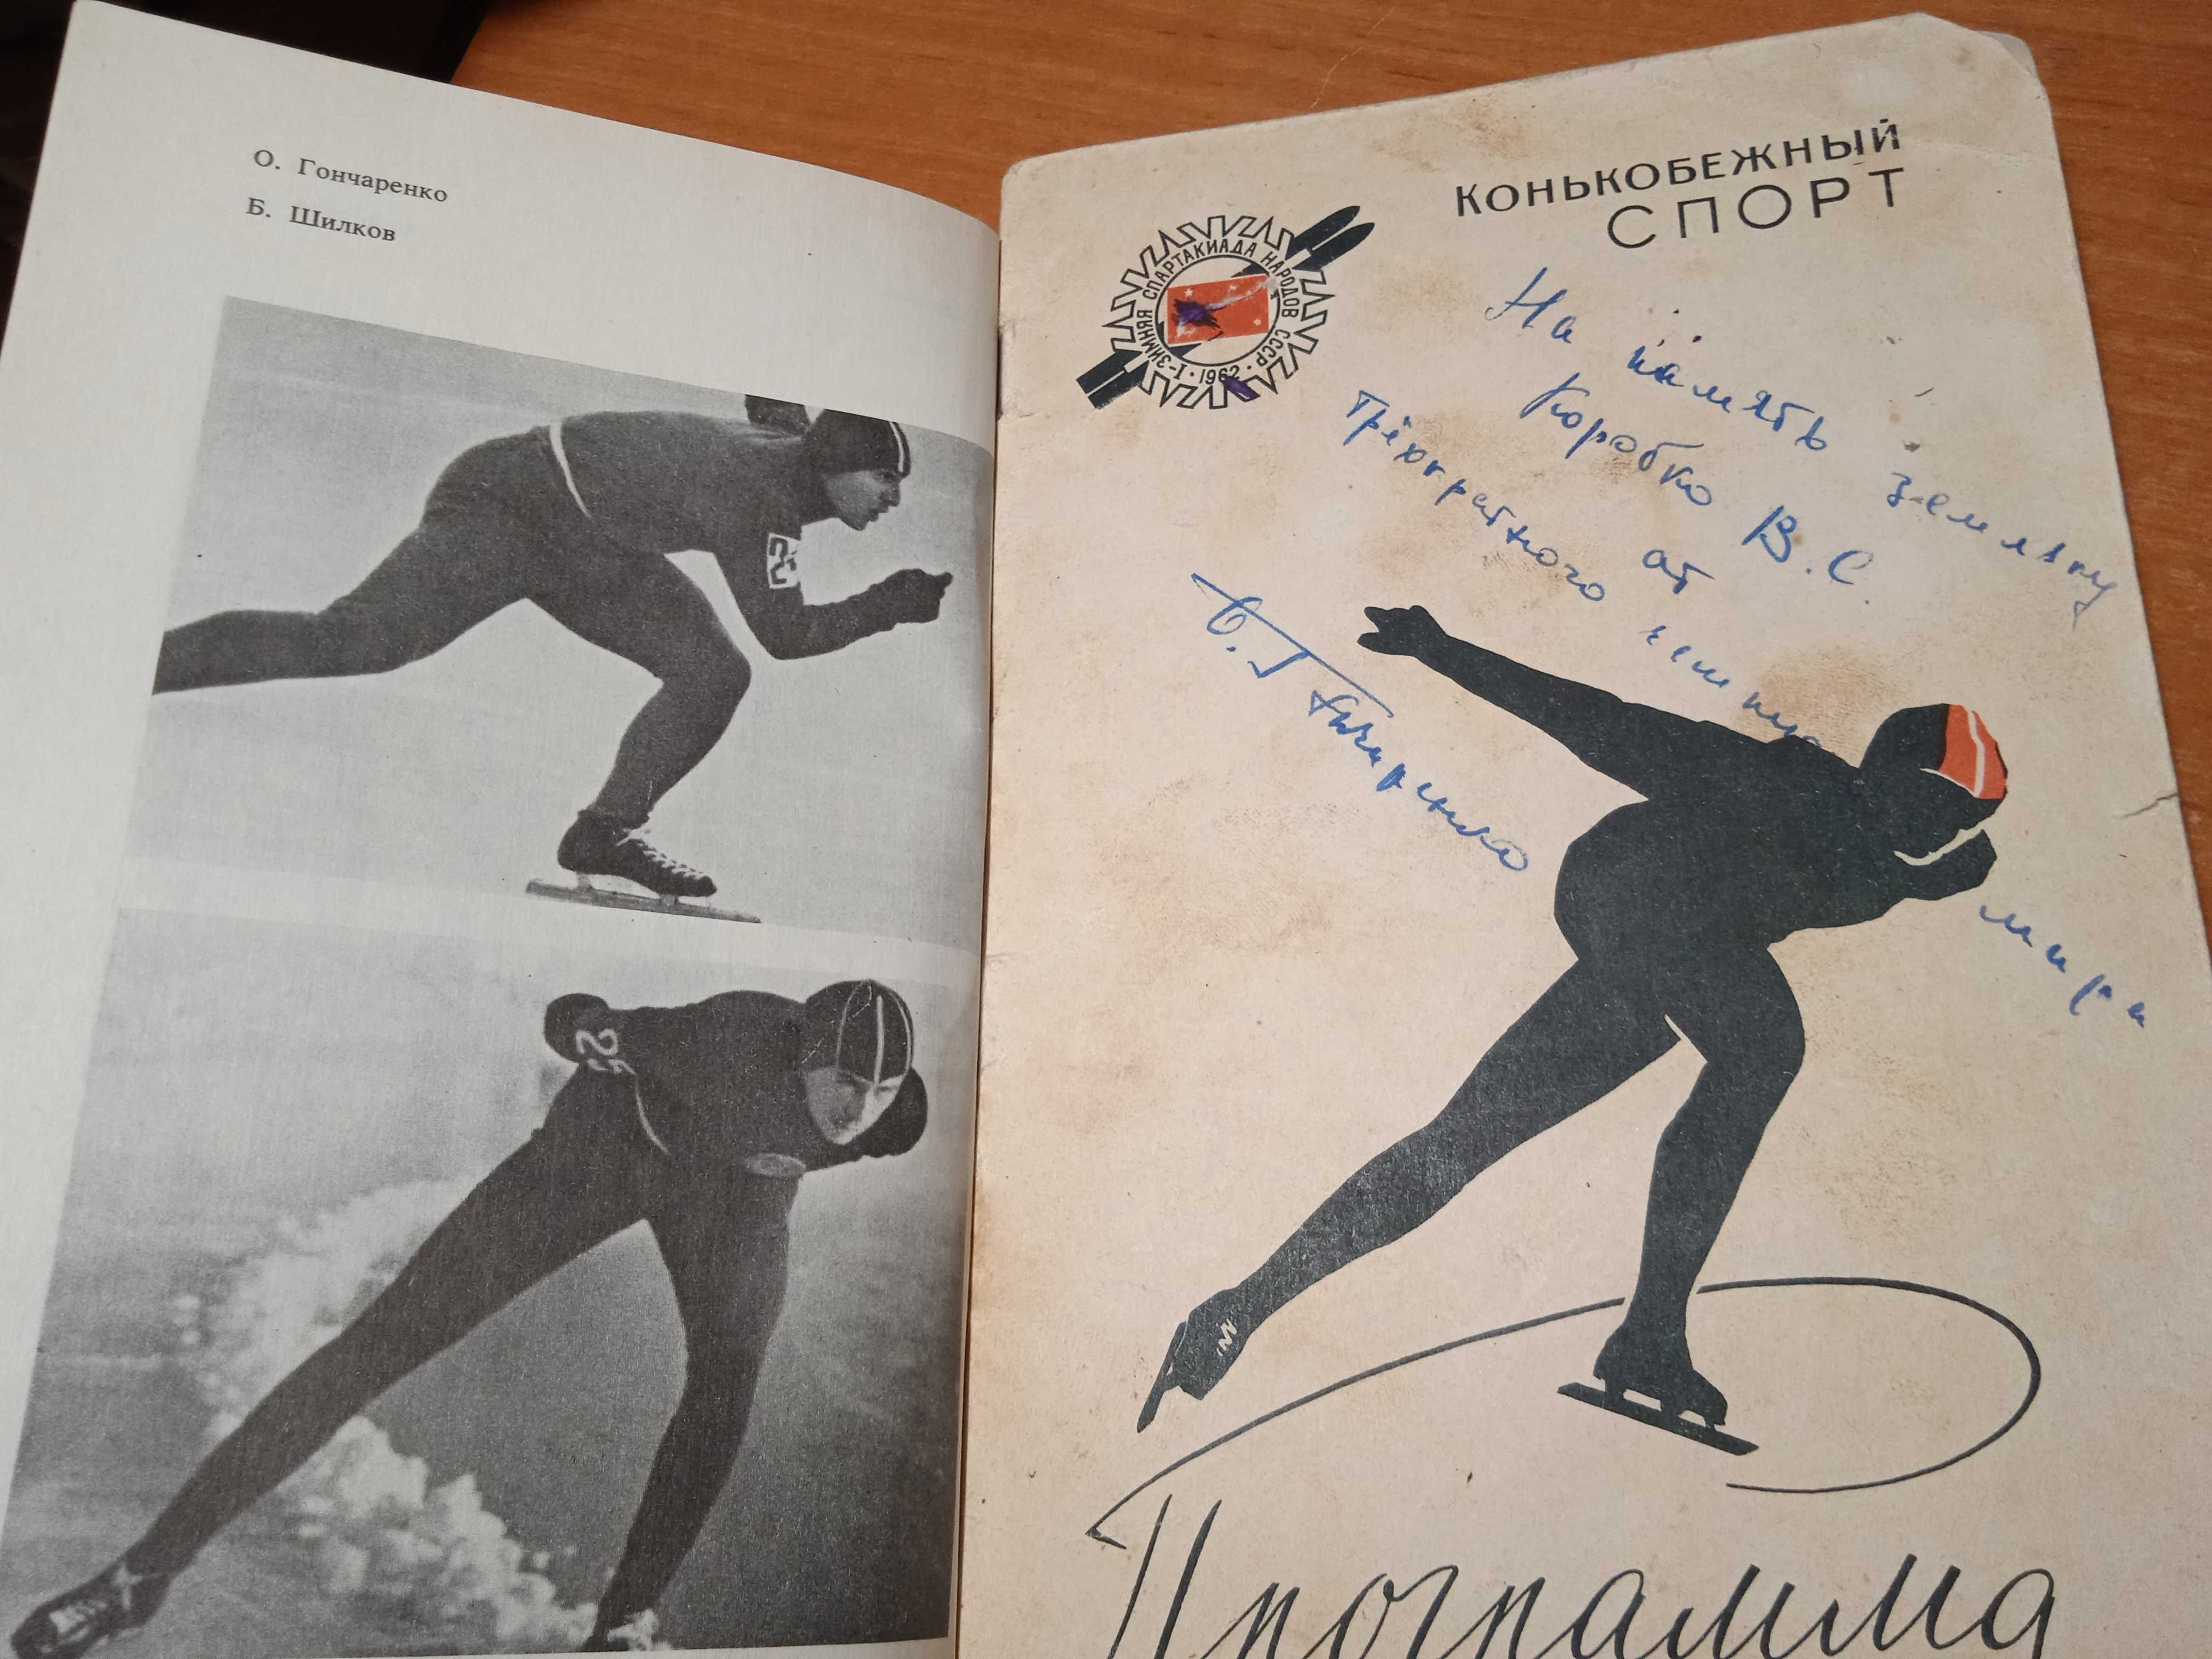 О. Гончаренко
Б. Шилков
2
25
КОНЬКОБЕЖНЫЙ
СПОРТ
I-ЗИМНЯЯ СПАРТАКИАДА НАРОДОВ СССР · 1962 ·
На память земляку
Коробко В.С.
от
трёхкратного чемпиона мира
О. Гончаренко
Программа